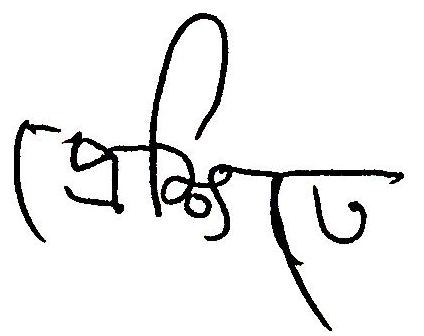 প্রেক্ষিতে